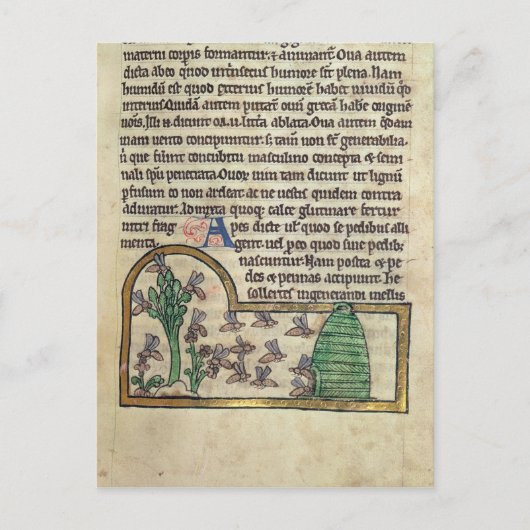 materni corporis formantur, & animantur. Oua autem
dicta abeo quod intrinsecus humore sit plena. Nam
humidū est quod exterius humorē habet uiuidū q̄d
interius. Quidā autem putant ouū grecā habe originē
nōis, Illi n̄ dicunt oa. u. littā ablata. Oua autem q̄dam
inani uento concipiuntur. S; tam̄ non st̄ generabilia.
n̄ que fūint concubitu masculino concepta & semi
nali spū penetrata. Ouor̄ uim tam dicunt ut lignū
ꝑfusum eo non ardeat. ac ne uestis quidem contra
aduratur. Admixta quoq; calce glutinare fertur
uitri frag
Apes dicte ul' quod se pedibus alli
menta.
gent. uel ꝑeo quod sine pedib;
nascuntur. Nam postea & pe
des & pennas accipiunt. He
sollertes ingenerandi mellis